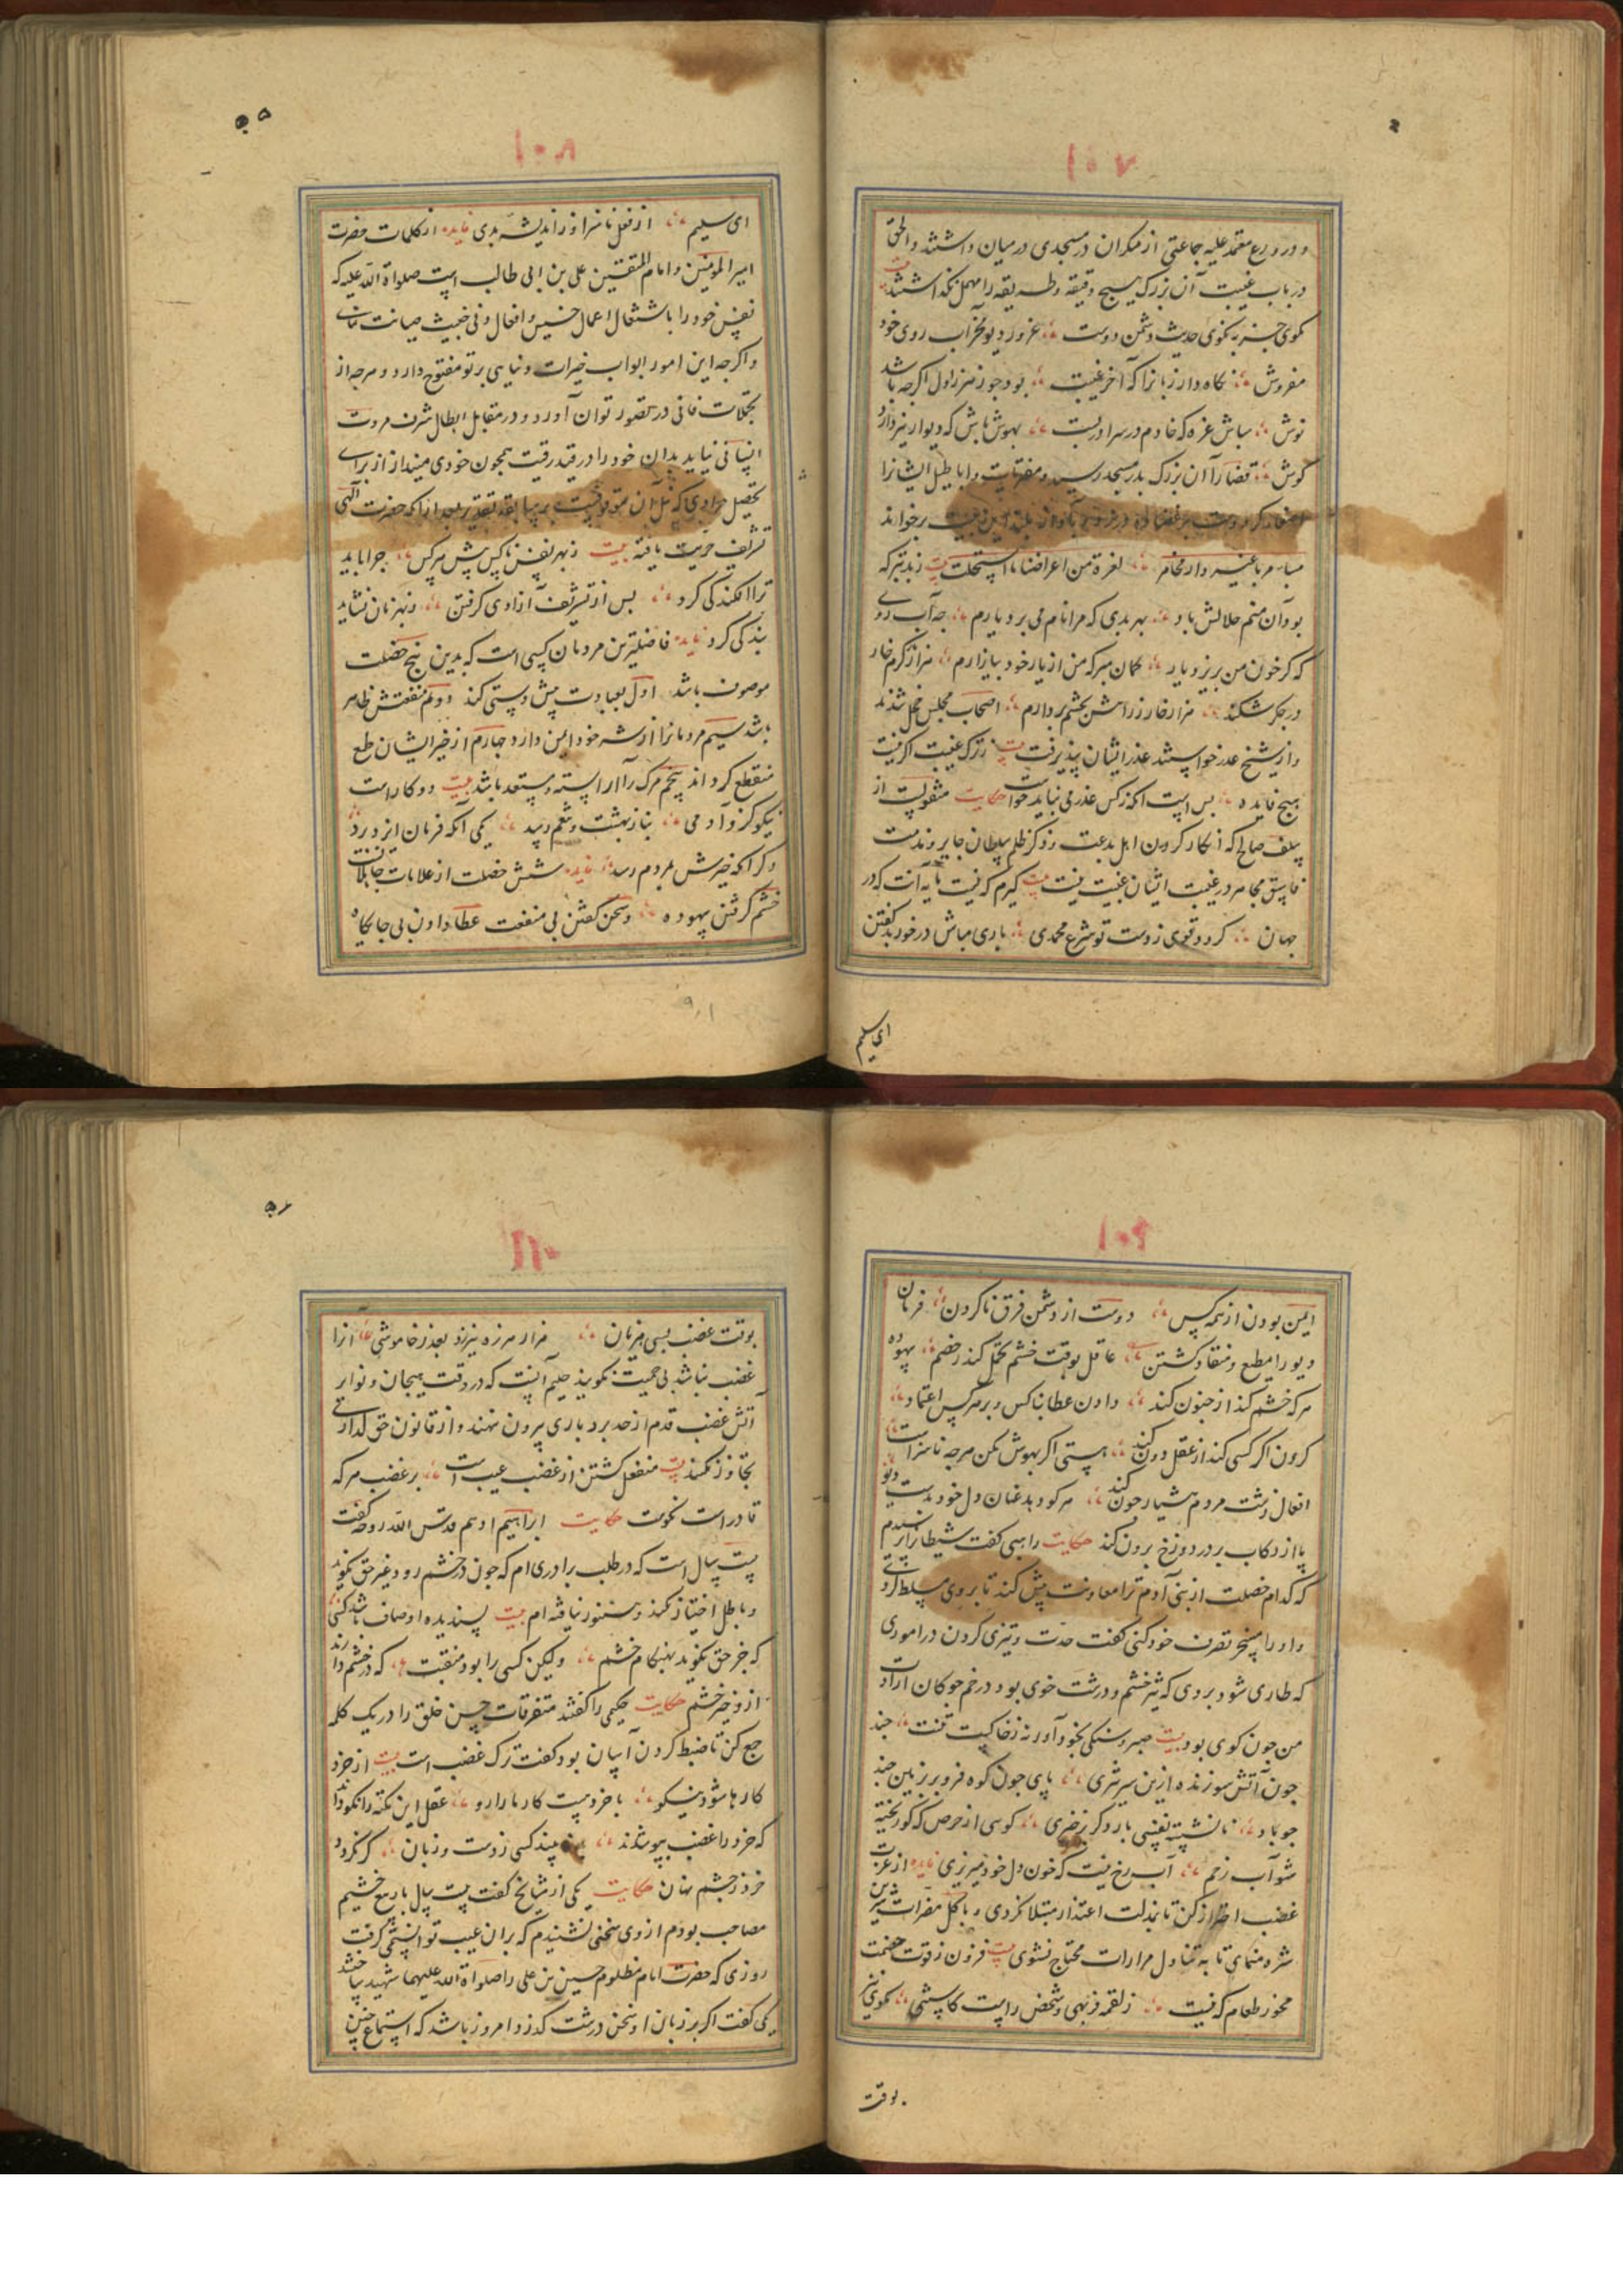 ۱۰۷
و در ورع معتمد علیه جماعتی از منکران در مسجدی در میان داشتند والحق
در باب غیبت آن بزرک هیچ دقیقه و طریقه را مهمل نکذاشتند بیت
مکوی جز به نکوی حدیث دشمن و دوست غرور دیو مخر آب روی خود
مفروش نکاه دار زبانرا که آخر غیبت بود جو زهر ز اول اکرجه باشد
نوش مباش غره که خادم در سرا دربست بهوش باش که دیوار نیز دارد
کوش قضا را آن بزرک بدر مسجد رسید و مفتریات و اباطیل ایشانرا
کرد و دست بر در زد و بآواز بلند این بیت برخواند
غیر داء مخامر لعزة من اعراضنا ما استحلت بیت ز بد تیر که
بود آن منم حلالش باد بهر بدی که مرا نام می برد یارم جه آب روی
که کر خون من بریزد یار کمان مبر که من از یار خود بیازارم هزار کرم خار
در جکر شکند هزار خار ز راهش بجشم بردارم اصحاب مجلس خجل شدند
و از شیخ عذر خواستند عذر ایشان پذیرفت بیت ز ترک غیبت اکر نیست
هیچ فایده بس است آنکه ز کس عذر می نباید خواست حکایت منقولست از
سلف صالح که انکار کردن اهل بدعت و ذکر ظلم سلطان جایر و مذمت
فاسق مجاهر در غیبت ایشان غیبت نیست بیت کیرم که نیست نایه آنت که در
جهان کردد قوی ز دوست تو شرع محمدی باری مباش در خور بد کفتن
ای سلیم
۱۰۸
ای سلیم از فعل ناسزا و ز اندیشه بدی فایده از کلمات حضرت
امیر المومنین و امام المتقین علی بن ابی طالب است صلواة الله علیه که
نفس خود را با شتغال اعمال خسیس و افعال دنی خبیث صیانت نمای
و اکرجه این امور ابواب خیرات دنیایی بر تو مفتوح دارد و هرجه از
تجملات فانی در تصور توان آورد و در مقابل ابطال شرف مروت
انسانی نیاید بدان خود را در قید رقیت همجون خودی مینداز از برای
تحصیل مرادی که نیل آن موقوفست بر سابقه تقدیر بعد از آنکه حضرت آلهی
تشریف حریت یافته بیت ز بهر نفس ناکس پیش هر کس جرا باید
ترا افکندکی کرد بس از تشریف آزادی کرفتن ز بهر نان نشاید
بندکی کرد فایده فاضلترین مردمان کسی است که بدین پنج خصلت
موصوف باشد اول بعبادت پیش دستی کند دوم منفعتش ظاهر
باشد سیم مردمانرا از شر خود ایمن دارد جهارم از خیر ایشان طمع
منقطع کرداند پنجم مرک را آراسته و مستعد باشد بیت دو کار است
نیکو کز و آدمی بناز بهشت و نعم رسید یکی آنکه فرمان ایزد برد
دکر آنکه خیرش بمردم رسد فایده شش خصلت از علامات جاهلانست
خشم کرفتن بیهوده و سخن کفتن بی منفعت عطا دادن بی جایکاه
۱۰۹
ایمن بودن از همه کس دوست از دشمن فرق ناکردن فرمان
دیو را مطیع و منقاد کشتن عاقل بوقت خشم تحمل کند ز خصم بیهوده
هر که خشم کند از جنون کند دادن عطا بناکس و بر هر کس اعتماد
کردن اکر کسی کند از عقل دون کند هستی اکر بهوش مکن هرجه ناسزاست
افعال زشت مردم هشیار جون کند هر کو دهد عنان دل خود بدست دیو
پا از رکاب بر در دوزخ برون کند حکایت راهبی کفت شیطانرا پرسیدم
که کدام خصلت از بنی آدم ترا معاونت پیش کند تا بر وی مسلط کردی
و او را مسخر تصرف خود کنی کفت حدت و تیزی کردن در اموری
که طاری شود بر وی که تیز خشم و درشت خوی بود در خم جوکان ارادت
من جون کوی بود بیت صبر و سنکی بخود آور نه ز خاکیت تنت جند
جون آتش سوزنده ازین سر تیزی پای جون کوه فرو بر زمین جند
جو باد نا نشسته نفسی بار دکر برخیزی کوسی از حرص که کو ریخته
شو آب زخم آب رخ نیست که خون دل خود میریزی فایده از عزت
غضب احتراز کن تا بمذلت اعتذار مبتلا نکردی و باکل مضرات شیرین
شره منمای تا به تناول مرارات محتاج نشوی بیت فزون ز قوت هضمت
مخور طعام که نیست ز لقمه فربهی شخص راست کاستنی مکوی تیز
بوقت
۱۱۰
بوقت غضب بسی هزیان هزار هرزه نیرزد بعذر خاموشی آنرا
غضب نباشد بی حمیت نکویند حلیم آنست که در وقت هیجان و نوایر
آتش غضب قدم از حد بردباری بیرون ننهد و از قانون حق کذاری
تجاوز نکند بیت منفعل کشتن از غضب عیب است بر غضب هر که
قادر است نکوست حکایت ابراهیم ادهم قدس الله روحه کفت
بیست سال است که در طلب برادری ام که جون در خشم رود غیر حق نکوید
و باطل اختیار نکند و هنوز نیافته ام بیت پسندیده اوصاف باشد کسی
که جز حق نکوید بهنکام خشم ولیکن کسی را بود منقبت که در خشم دارند
ازو خیر جشم حکایت حکیمی را کفتند متفرقات حسن خلق را در یک کلمه
جمع کن تا ضبط کردن آسان بود کفت ترک غضب است بیت از خرد
کارها شود نیکو با خرد بیت کارها را رو عقل این نکته را نکو داند
که خرد را غضب بپوشاند نپسندد کسی ز دست و زبان کر نکردد
خرد ز جشم نهان حکایت یکی از مشایخ کفت بیست سال با ربیع خشیم
مصاحب بودم از وی سخنی نشنیدم که بر آن عیب توانستمی کرفت
روزی که حضرت امام مظلوم حسین بن علی را صلواة الله علیهما شهید ساختند
یکی کفت اکر بر زبان او سخن درشت کذرد امروز باشد که استماع جنین